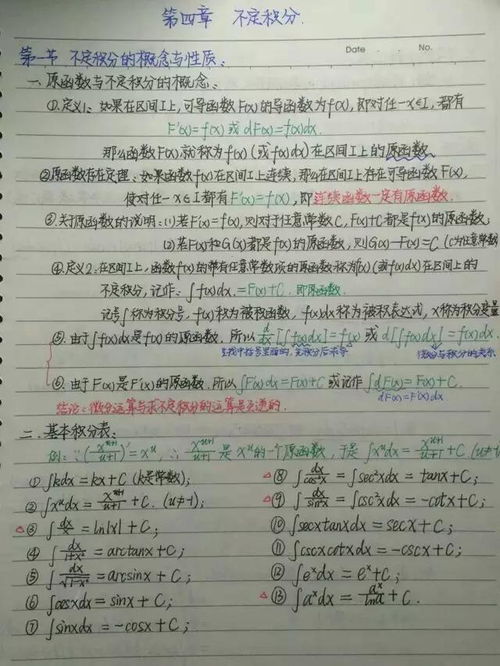 第四章 不定积分.
Date . . No.
第一节 不定积分的概念与性质:
一.原函数与不定积分的概念:
①.定义1:如果在区间I上,可导函数F(x)的导函数为f(x),即对任一x∈I,都有
F'(x)=f(x)或dF(x)=f(x)dx.
那么函数F(x)就称为f(x)(或f(x)dx)在区间I上的原函数.
②原函数存在定理:如果函数f(x)在区间I上连续,那么在区间I上存在可导函数F(x),
使对任一x∈I都有F'(x)=f(x),即连续函数一定有原函数.
③.关于原函数的说明:(1)若F'(x)=f(x),则对于任意常数C,F(x)+C都是f(x)的原函数
(2)若F(x)和G(x)都是f(x)的原函数,则G(x)-F(x)=C(C为任意常数
④.定义2:在区间I上,函数f(x)的带有任意常数项的原函数称为f(x)(或f(x)dx)在区间I上的
不定积分,记作:∫f(x)dx.=F(x)+C.即原函数.
记号∫称为积分号,f(x)称为被积函数,f(x)dx称为被积表达式,x称为积分变量
⑤.由于∫f(x)dx是f(x)的原函数,所以d/dx[∫f(x)dx]=f(x)或d[∫f(x)dx]=f(x)dx.
⑥.由于F(x)是F'(x)的原函数,所以∫F'(x)dx=F(x)+C或记作∫dF(x)=F(x)+C.
dF(x)=F'(x)dx
结论:微分运算与求不定积分的运算是互逆的.
二.基本积分表:
例:∵(x^(u+1)/(u+1))'=x^u,∴x^(u+1)/(u+1)是x^u的一个原函数,于是∫x^u dx=x^(u+1)/(u+1)+C(u≠-1
①∫kdx=kx+C(k是常数);
②∫x^u dx=x^(u+1)/(u+1)+C.(u≠-1);
△③∫dx/x=ln|x|+C;
④∫dx/(1+x²)=arctanx+C;
⑤∫dx/√(1-x²)=arcsinx+C;
⑥∫cosxdx=sinx+C;
⑦∫sinxdx=-cosx+C;
△⑧∫dx/cos²x=∫sec²xdx=tanx+C;
△⑨∫dx/sin²x=∫csc²xdx=-cotx+C;
⑩∫secxtanxdx=secx+C;
⑪∫cscxcotxdx=-cscx+C;
⑫∫e^x dx=e^x+C;
△⑬∫a^x dx=a^x/lna+C.